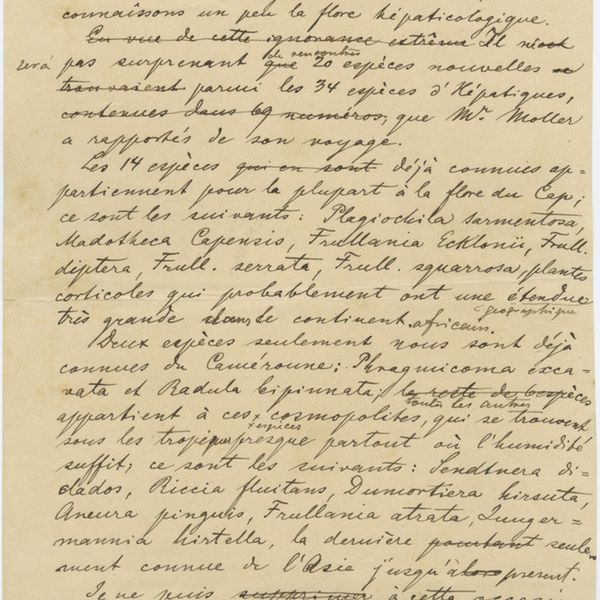 connaîssons un peu la flore hépaticologique.
En vue de cette ignorance extrême Il n'est
sera pas surprenant que de rencontrer 20 espèces nouvelles se
trouvaient parmi les 34 espèces d'Hépatiques,
contenues dans 69 numéros, que Mr. Moller
a rapportés de son voyage.
Les 14 espèces qui en sont déjà connues ap=
partiennent pour la plupart à la flore du Cap;
ce sont les suivants: Plagiochila sarmentosa,
Madotheca Capensis, Frullania Ecklonii, Frull.
diptera, Frull. serrata, Frull. squarrosa, plantes
corticoles qui probablement ont une étendue
géographique
très grande dans le continent africain.
Deux espèces seulement nous sont déjà
connues du Caméroune: Phragmicoma exca=
vata et Radula bipinnata; le reste de 6 espèces
toutes les autres
appartient à ces cosmopolites, qui se trouvent
espèces
sous les tropiques presque partout où l'humidité
suffit; ce sont les suivants: Sendtnera di=
clados, Riccia fluitans, Dumortiera hirsuta,
Aneura pinguis, Frullania atrata, Junger=
mannia hirtella, la dernière pourtant seule=
ment connue de l'Asie jusqu'à présent.
Je ne puis supprimer à cette